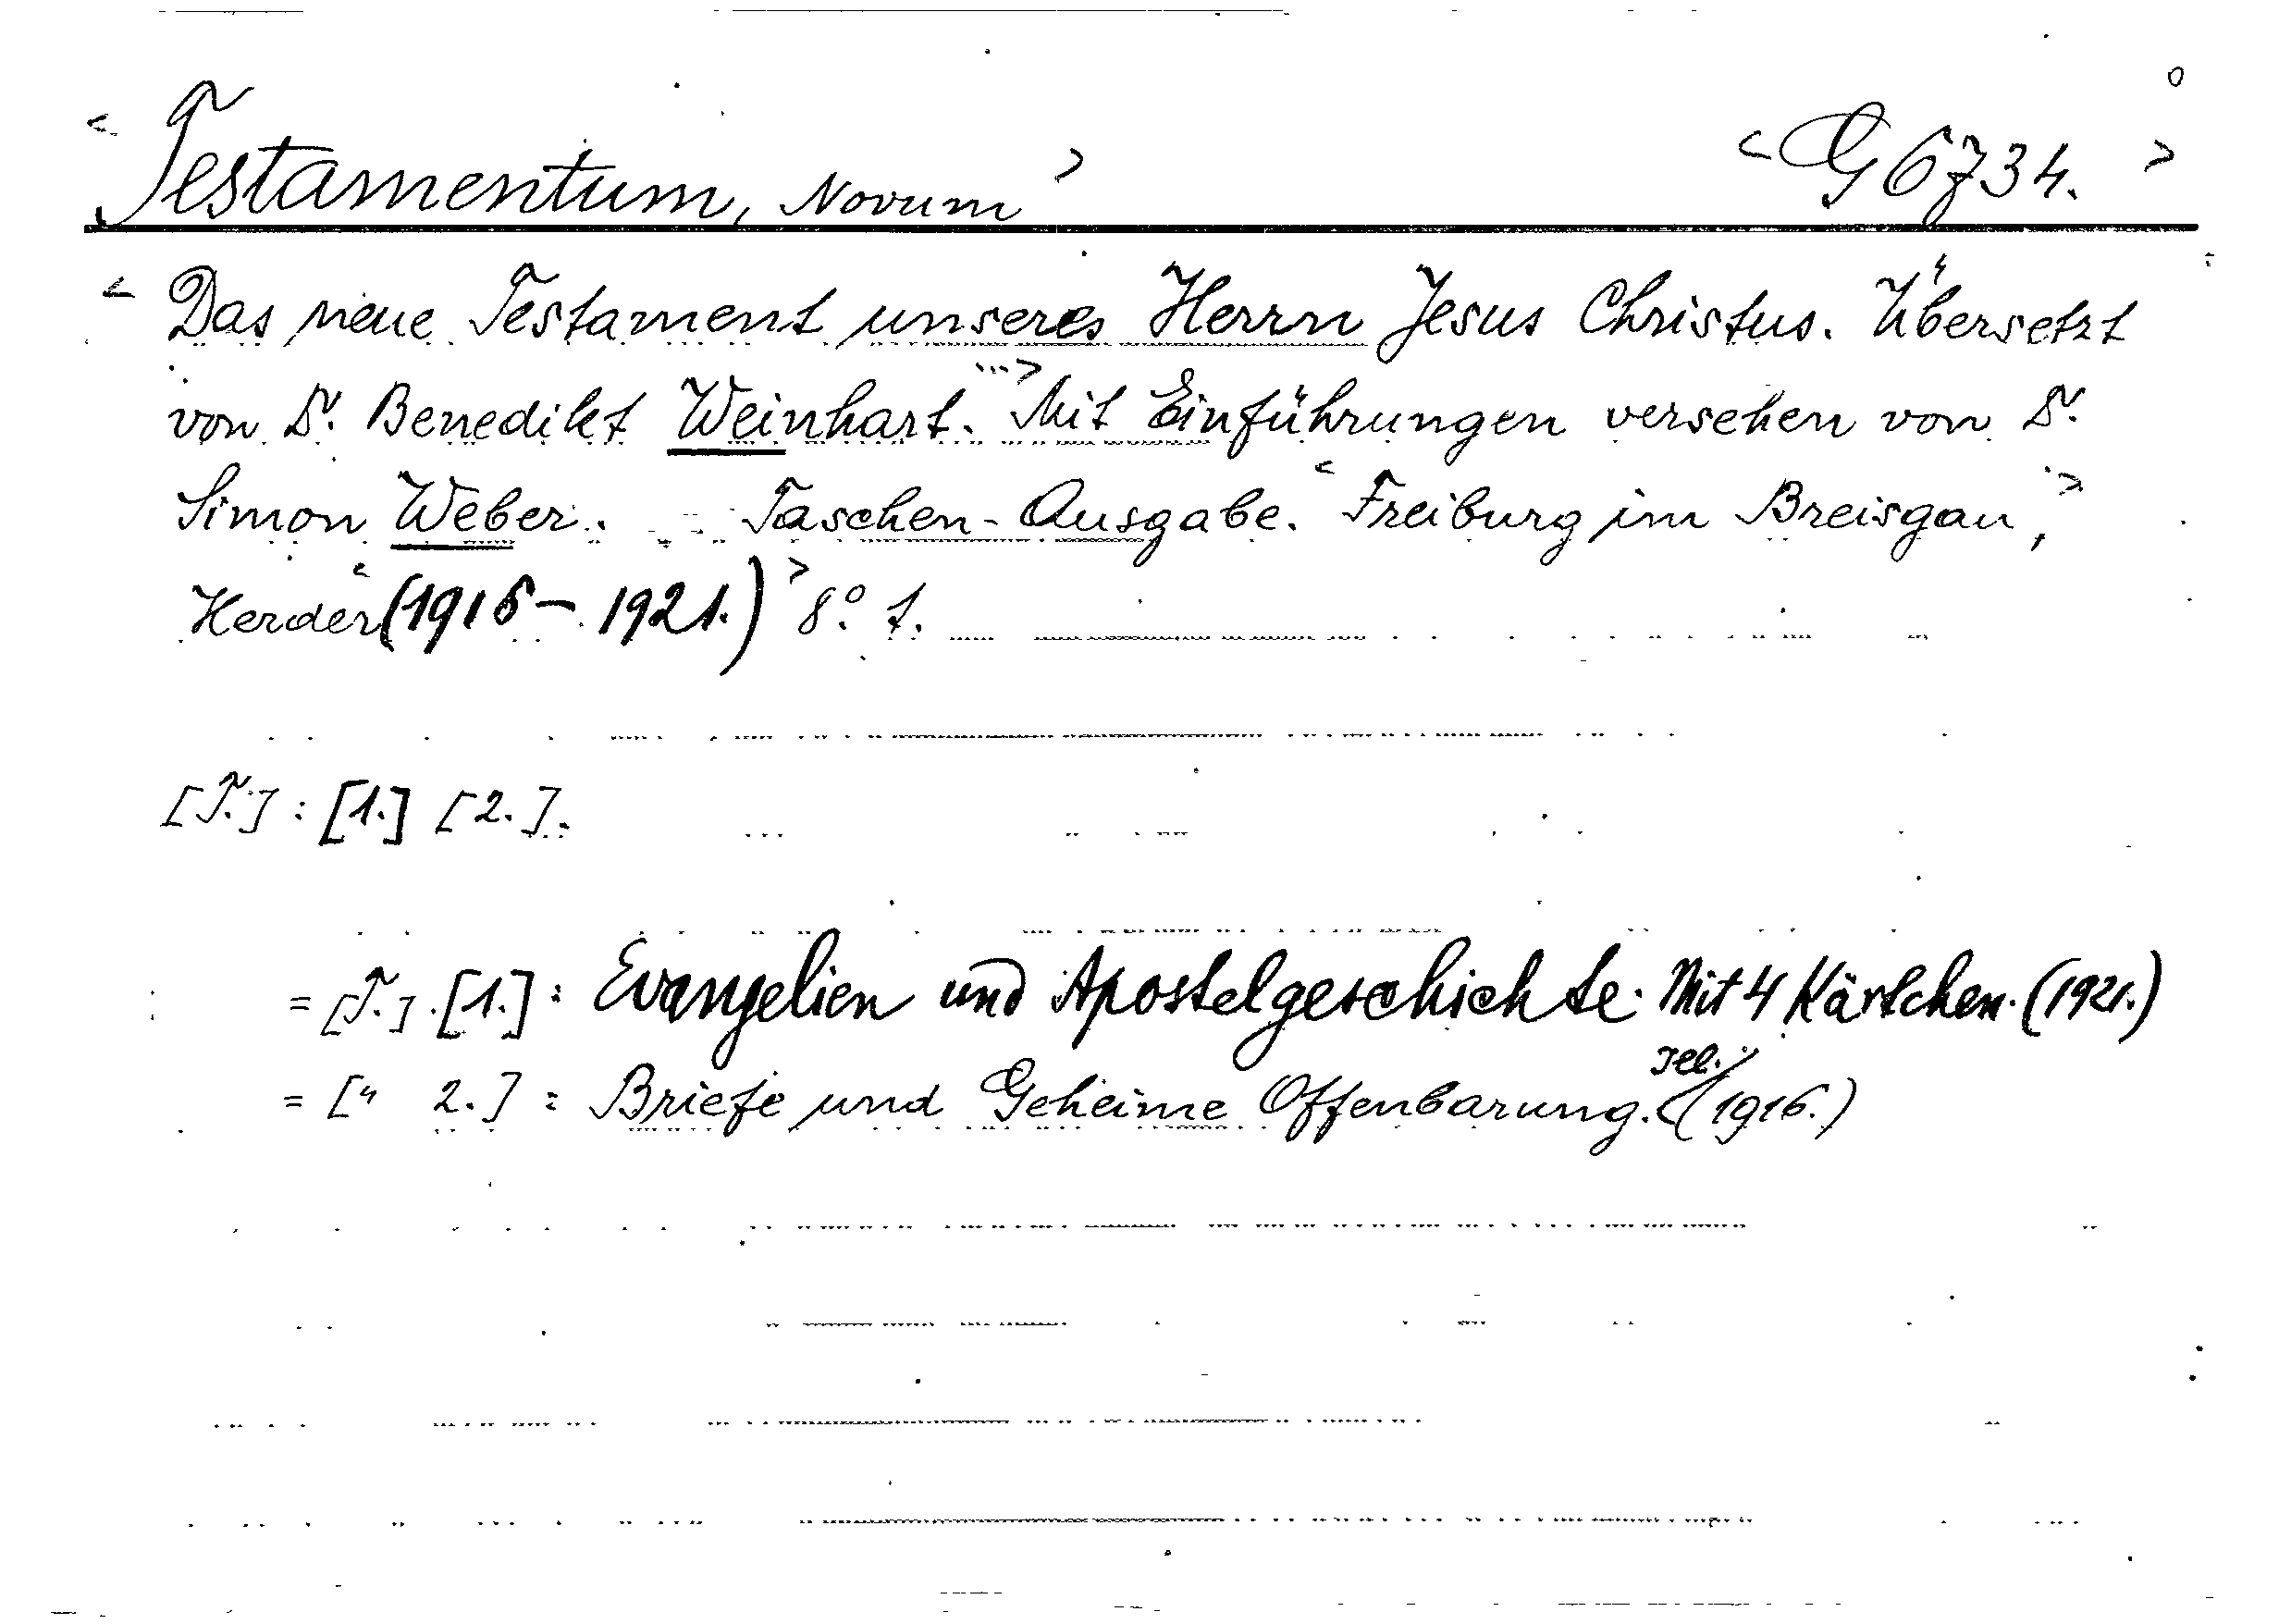 < Testamentum, Novum > < G 6734. >
< Das neue Testament unseres Herrn Jesus Christus. Übersetzt
von Dr. Benedikt Weinhart. ...> Mit Einführungen versehen von Dr.
Simon Weber. - Taschen-Ausgabe. < Freiburg im Breisgau, >
Herder < (1916 - 1921.) > 8°. t.
[T.] : [1.] [2.].
= [T.] . [1.] : Evangelien und Apostelgeschichte. Mit 4 Kärtchen. (1921.)
= [" 2.] : Briefe und Geheime Offenbarung. (1916.)